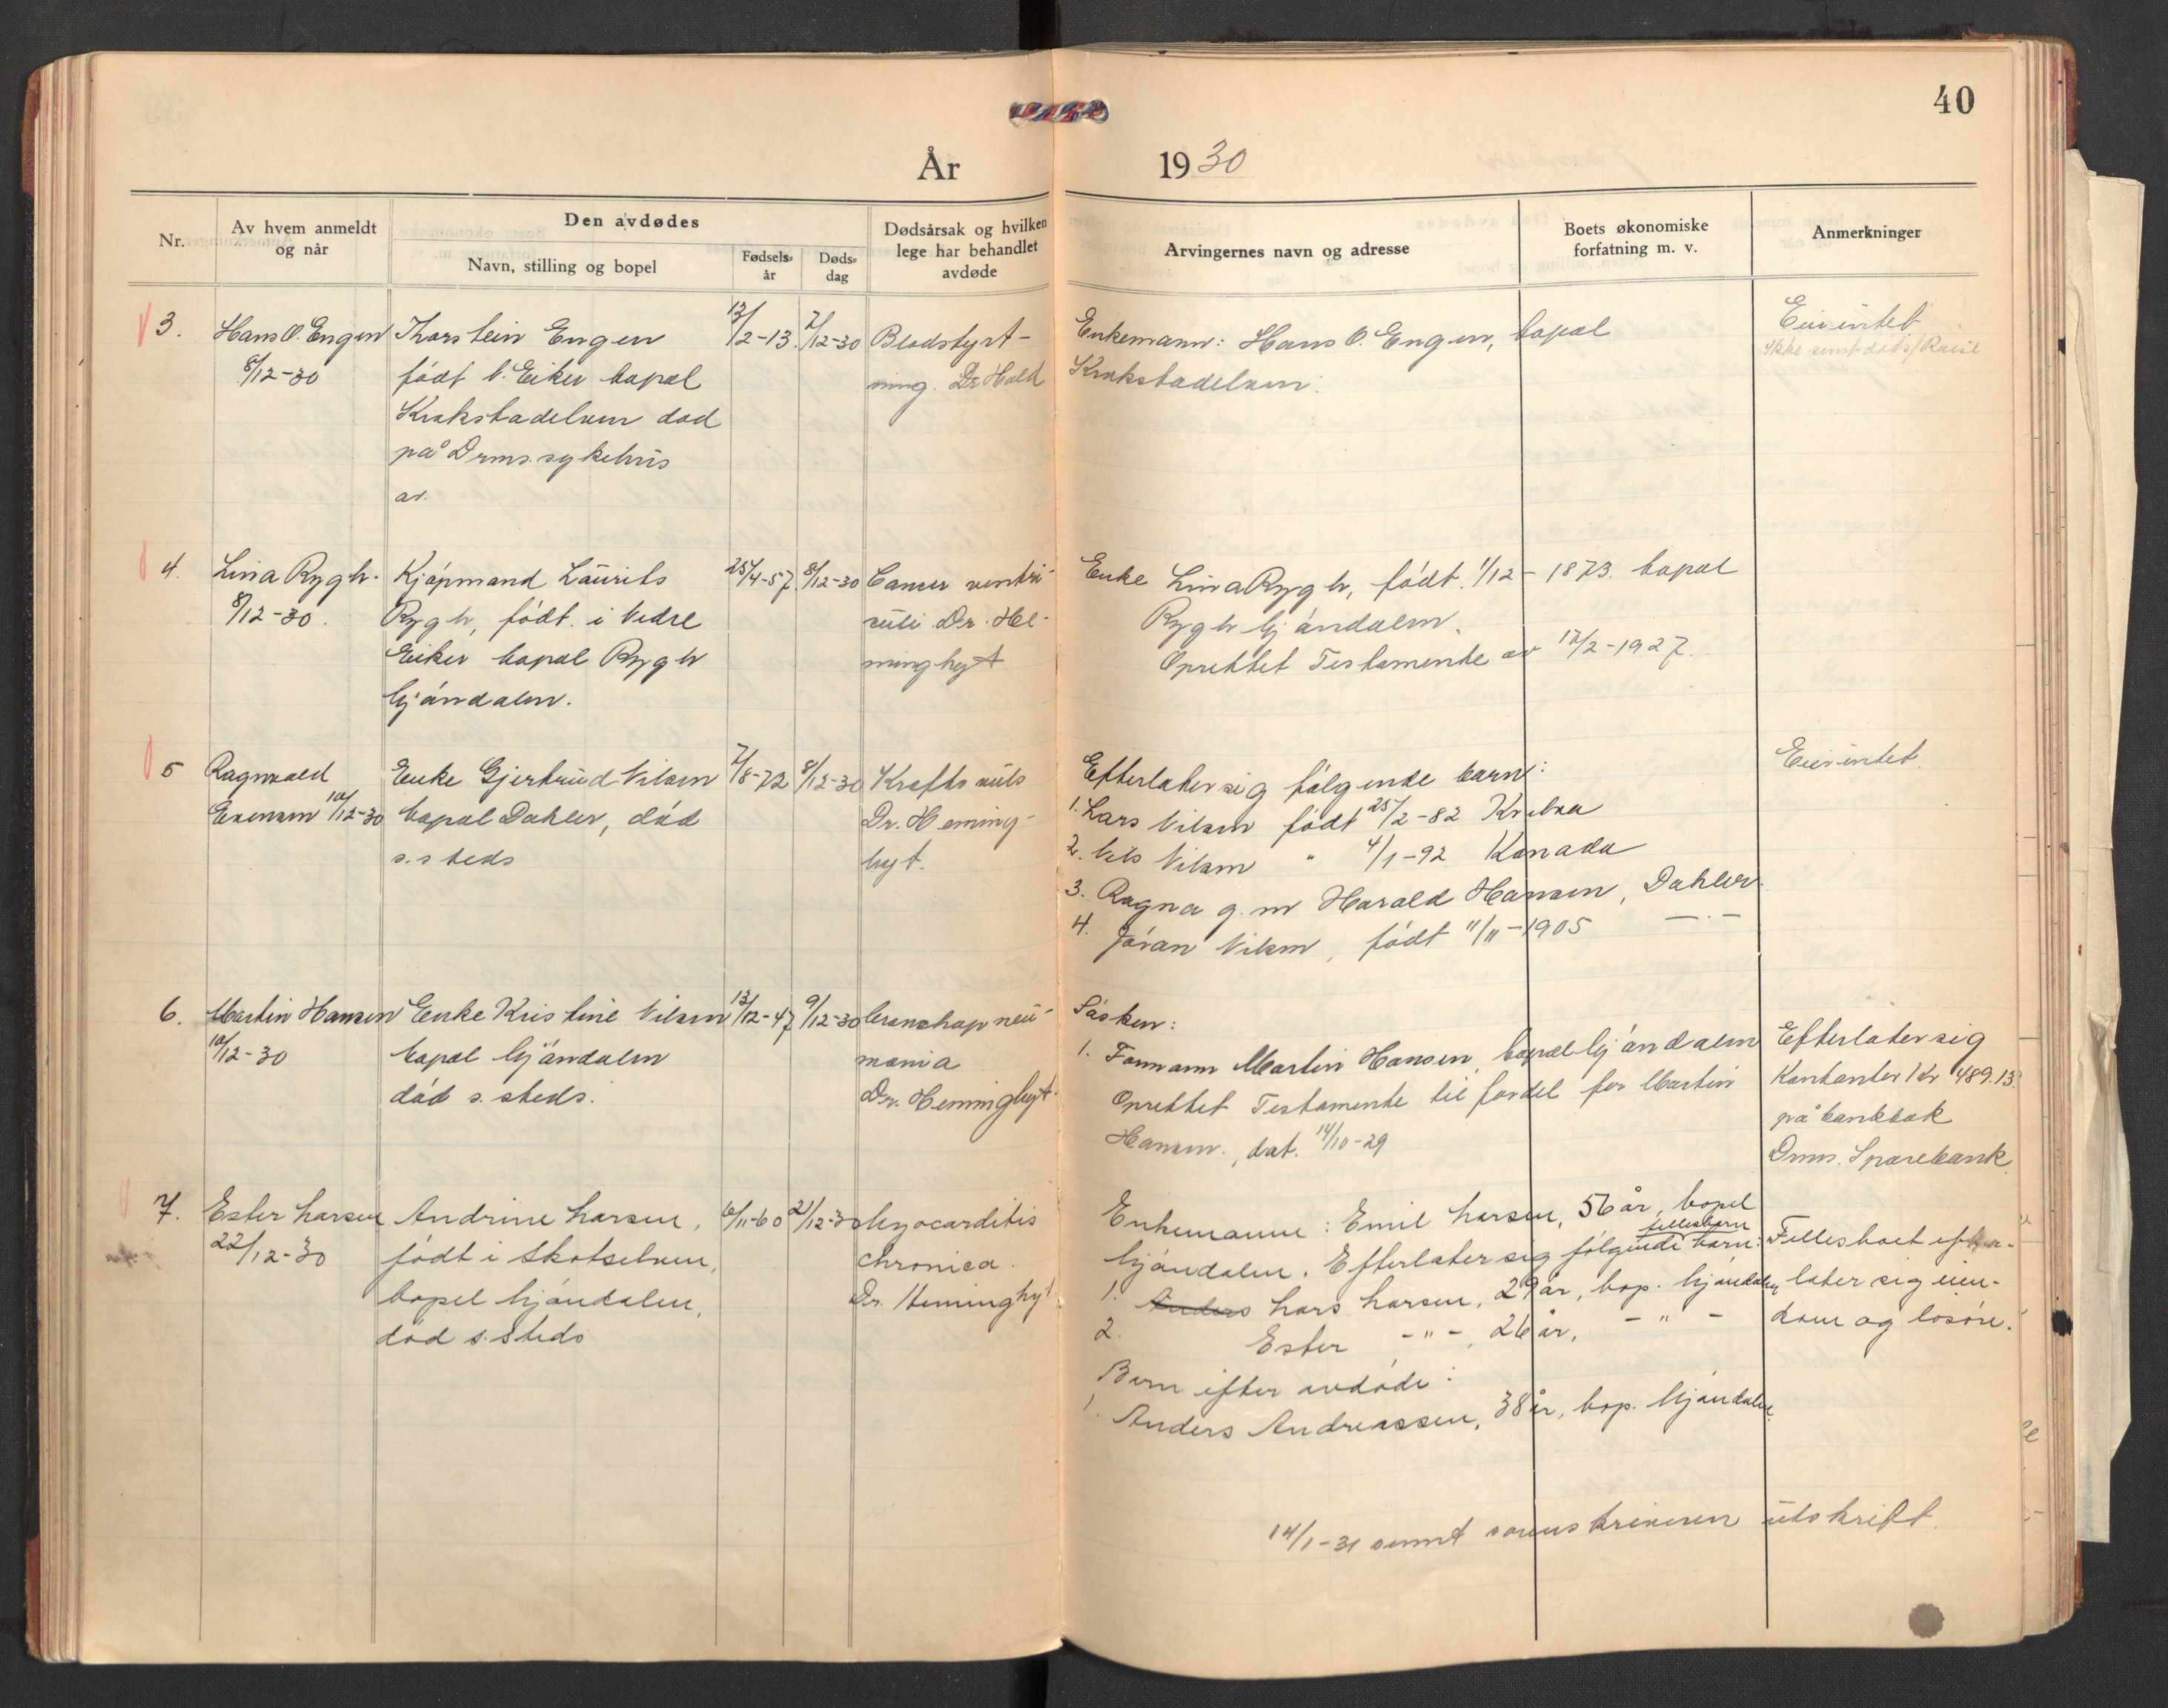 40
År 1930
Nr.
Av hvem anmeldt
og når
Den avdødes
Navn, stilling og bopel
Fødsels-
år
Døds-
dag
Dødsårsak og hvilken
lege har behandlet
avdøde
Arvingernes navn og adresse
Boets økonomiske
forfatning m. v.
Anmerkninger
3.
Hans O. Engen
8/12-30
Thorstein Engen
født N. Eiker bopæl
Krokstadelven død
på Drms. sykehus
av.
13/2-13.
7/12-30
Blodstyrt-
ning. Dr. Hald
Enkemann: Hans O. Engen, bopæl
Krokstadelven.
Eier intet
4.
Lina Rygh.
8/12-30.
Kjøpmand Laurits
Rygh, født i Nedre
Eiker bopæl Rygh
Mjøndalen.
25/4-57.
8/12-30
Cancer ventri-
culi Dr. He-
minghyt
Enke Lina Rygh, født 1/12-1873. bopæl
Rygh Mjøndalen.
Oprettet Testamente av 12/2-1927.
5
Ragnvald
Evensen 10/12-30
Enke Gjertrud Nilsen
bopæl Dahler, død
s. steds
7/8-72
8/12-30
Krefts
Dr. Heming-
hyt.
Efterlater sig følgende barn:
1. Lars Nilsen født 25/2-82
2. Nils Nilsen " 4/1-92 Kanada
3. Ragna g. m. Harald Hansen, Dahler
4. Jøran Nilsen, født 11/11-1905 — . —
Eier intet.
6.
Martin Hansen
10/12-30
Enke Kristine Nilsen
bopæl Mjøndalen
død s. steds.
13/12-47
9/12-30
Bronchopneu-
monia
Dr. Heminghyt.
Søsken:
1. Formann Martin Hansen, bopæl Mjøndalen
Oprettet Testamente til fordel for Martin
Hansen., dat. 14/10-29
Efterlater sig
Kontanter Kr 489.13.
på bankbok
Drms. Sparebank.
7.
Ester Larsen
22/12-30
Andrine Larsen,
født i Skotselven,
bopel Mjøndalen,
død s. steds
6/11-60
21/12-30
Myocarditis
chronica.
Dr. Heminghyt.
Enkemann: Emil Larsen, 56 år, bopel
fellesbarn
Mjøndalen. Efterlater sig følgende barn:
1. Anders Lars Larsen, 29 år, bop. Mjøndalen
2. Ester - " -, 26 år, - " -
Barn efter avdøde:
1. Anders Andreassen, 38 år, bop. Mjøndalen.
Fellesboet efter-
later sig eien-
dom og løsøre.
14/1-31 sendt sorenskriveren utskrift.